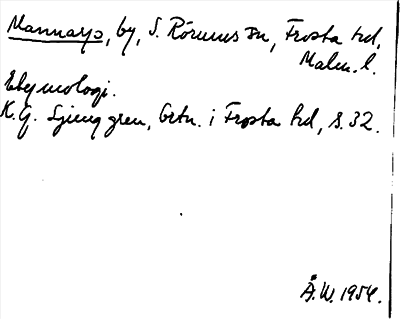 Mannarp, by, S. Rörums sn, Frosta hd,
Malm. l.
Etymologi.
K.G. Ljunggren, Ortn. i Frosta hd, s. 32.
Å.W. 1954.